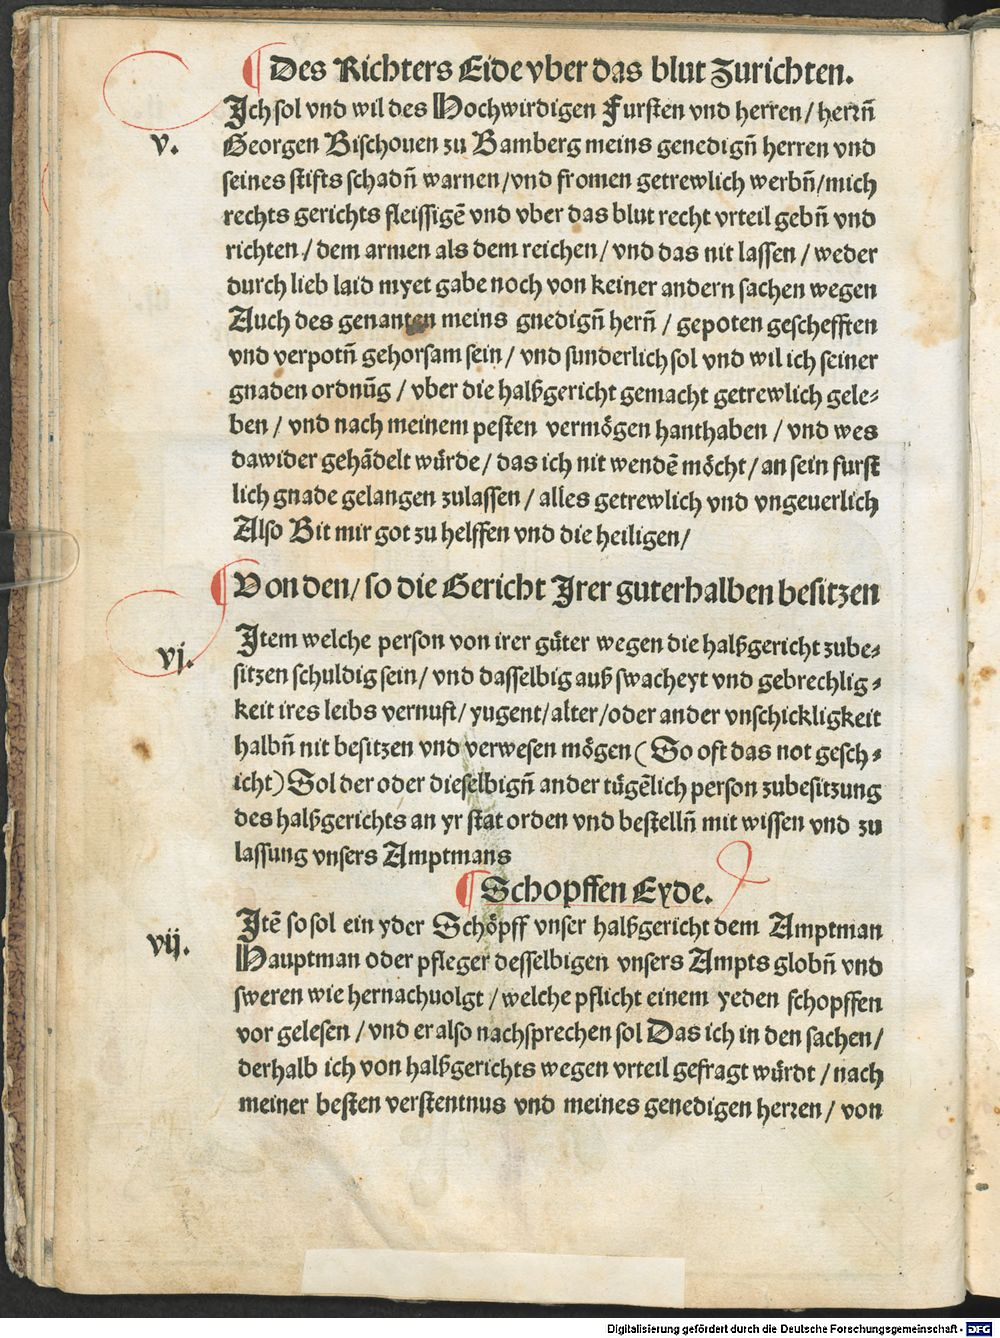 ¶ Des Richters Eide vber das blut Zurichten.
v.
Ich sol vnd wil des Hochwirdigen Fursten vnd herren / herrñ
Georgen Bischouen zu Bamberg meins genedigñ herren vnd
seines stifts schadñ warnen / vnd fromen getrewlich werbñ / mich
rechts gerichts fleissigē vnd vber das blut recht vrteil gebñ vnd
richten / dem armen als dem reichen / vnd das nit lassen / weder
durch lieb laid myet gabe noch von keiner andern sachen wegen
Auch des genanten meins gnedigñ herñ / gepoten geschefften
vnd verpotñ gehorsam sein / vnd sunderlich sol vnd wil ich seiner
gnaden ordnūg / vber die halßgericht gemacht getrewlich gele⸗
ben / vnd nach meinem pesten vermögen hanthaben / vnd wes
dawider gehādelt würde / das ich nit wendē möcht / an sein furst
lich gnade gelangen zulassen / alles getrewlich vnd vngeuerlich
Also Bit mir got zu helffen vnd die heiligen /
¶ Von den / so die Gericht Irer guterhalben besitzen
vj.
Item welche person von irer güter wegen die halßgericht zube⸗
sitzen schuldig sein / vnd dasselbig auß swacheyt vnd gebrechlig⸗
keit ires leibs vernuft / yugent / alter / oder ander vnschickligkeit
halbñ nit besitzen vnd verwesen mögen ( So oft das not gesch⸗
icht ) Sol der oder dieselbigñ ander tügēlich person zubesitzung
des halßgerichts an yr stat orden vnd bestellñ mit wissen vnd zu
lassung vnsers Amptmans
¶ Schopffen Eyde.
vij.
Itē so sol ein yder Schöpff vnser halßgericht dem Amptman
Hauptman oder pfleger desselbigen vnsers Ampts globñ vnd
sweren wie hernachuolgt / welche pflicht einem yeden schopffen
vor gelesen / vnd er also nachsprechen sol Das ich in den sachen /
derhalb ich von halßgerichts wegen vrteil gefragt würdt / nach
meiner besten verstentnus vnd meines genedigen herren / von
Digitalisierung gefördert durch die Deutsche Forschungsgemeinschaft - DFG